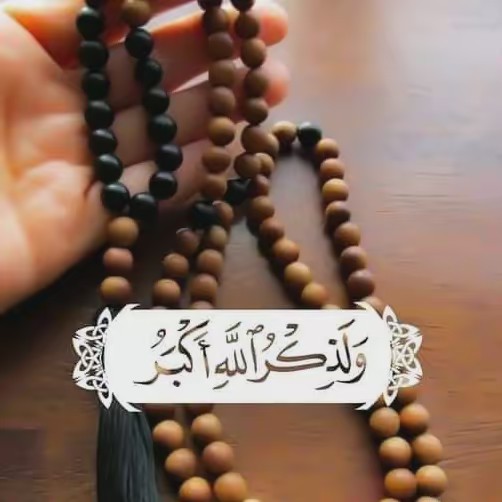 وَلَذِكْرُ ٱللَّهِ أَكْبَرُ